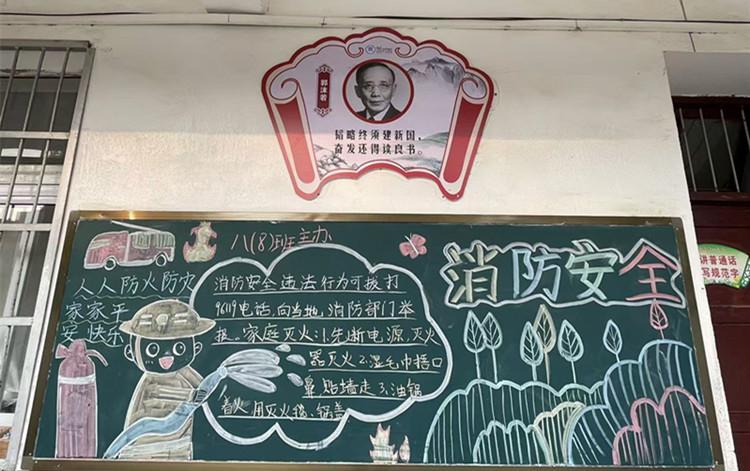 郭沫若
韬略终须建新国,
奋发还得读良书。
八(8)班主办
人人防火防灾
家家平
安快乐
消防安全违法行为可拔打
96119电话,向当地,消防部门举
报。家庭灭火:1.先断电源,灭火
器灭火2.湿毛巾捂口
鼻贴墙走3.油锅
着火用灭火毯、锅盖
消防安全
讲普通话
写规范字